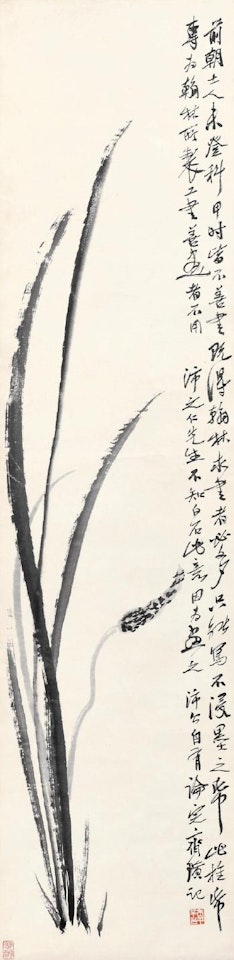 前朝士人未登科甲时皆不善书既得翰林求书者必多只能写不浸墨之纸此推纸
尊为翰林所制工书善画者不用 沛之仁先生不知白石此意因为画之 沛公自有论定 齐璜记